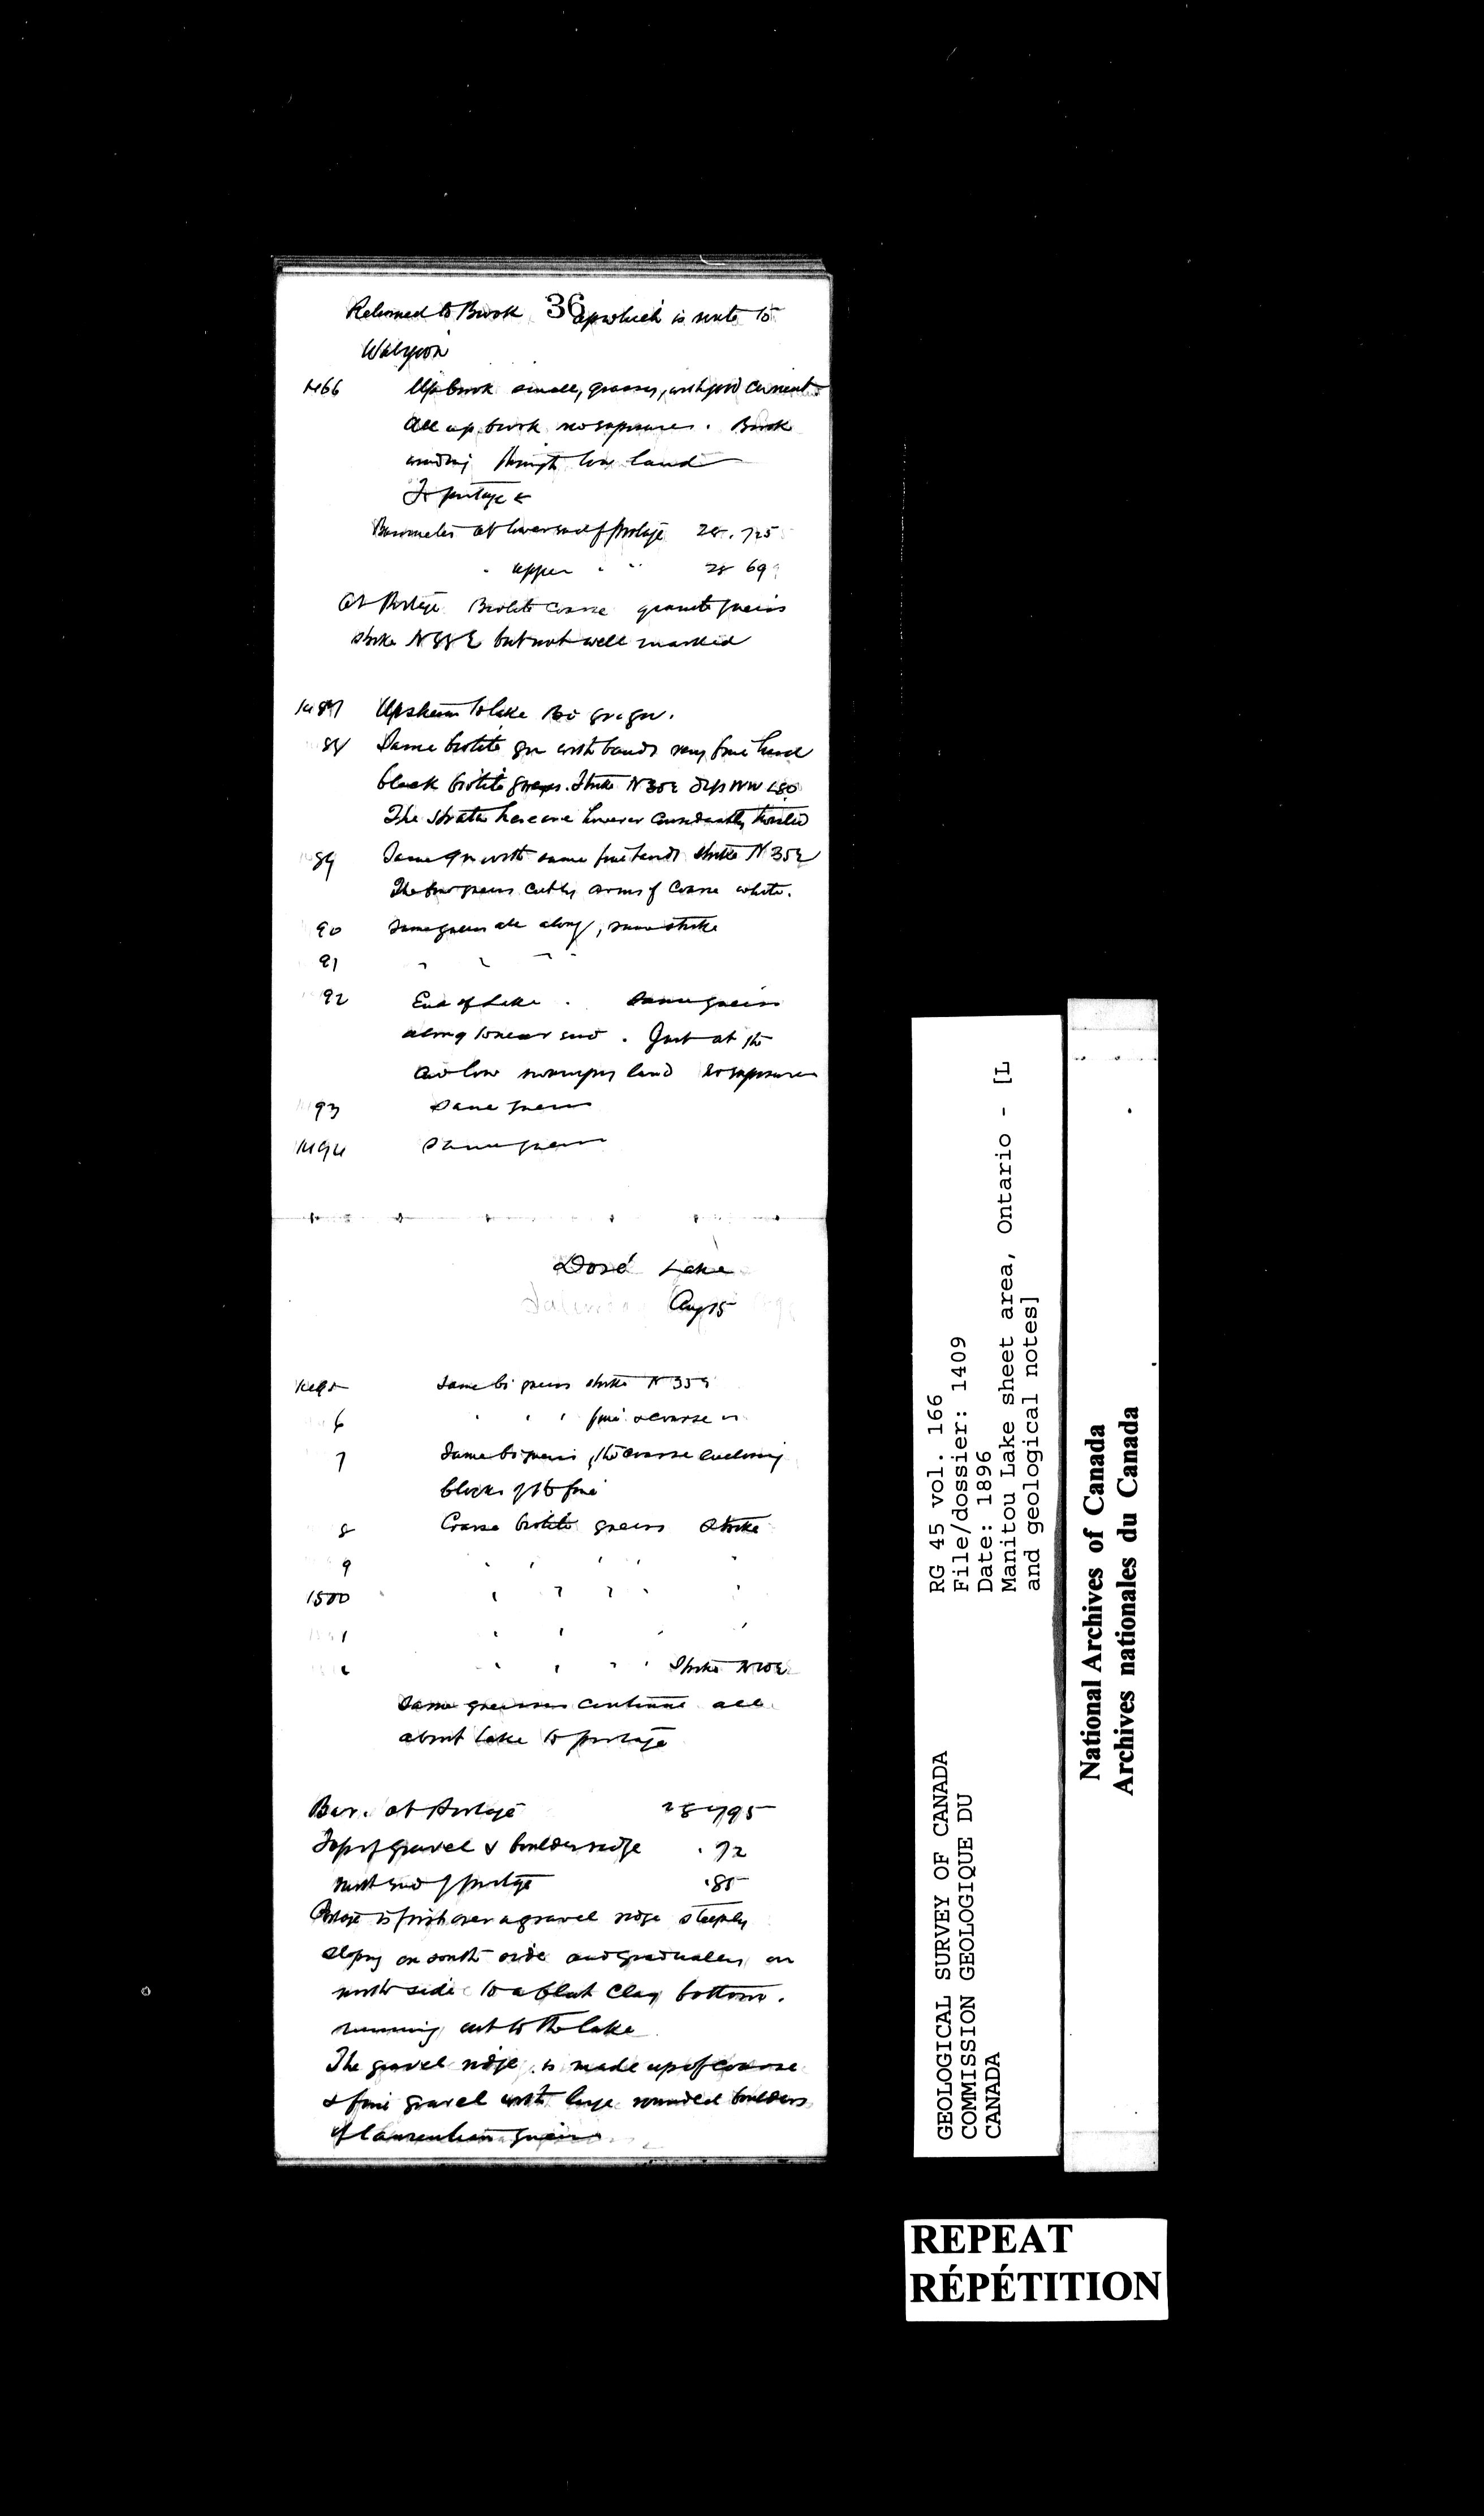 Returned to Brook 36 up which is route to
Wabigoon
1486 Up brook small, grassy, with good current
all up brook no exposures. Brook
winding through low land
To portage
Barometer at lower end of portage 28.725
" upper " " 28 69
At Portage Biotite coarse granite gneiss
strike N 55 E but not well marked
1487 Upstream to lake Bi gr. gn.
88 Same biotite gn with bands very fine hard
black biotite gneiss. Strike N 30 E dips NW <80
The strata here are however considerably twisted
89 Same gn with same fine bands strike N 35 E
The fine gneiss cut by arms of coarse white.
90 Same gneiss all along, same strike
91 " " " "
92 End of Lake. Same gneiss
along to near end. Just at the
end low swampy land no exposures
93 Same gneiss
1494 Same gneiss
Doré Lake
Aug 15
1495 Same bi gneiss strike N 35 E
6 " " " fine & coarse "
7 Same bi gneiss, the coarse enclosing
blocks of the fine
8 Coarse biotite gneiss Strike
9 " " " " "
1500 " " " " "
1 " " " "
2 " " " " Strike
Same gneisses continue all
about lake to portage
Bar. at Portage 28 795
Top of gravel & boulder ridge .72
north end of portage .85
Portage is first over a gravel ridge steeply
sloping on south side and gradually on
north side to a flat clay bottom.
running out to the lake
The gravel ridge is made up of coarse
& fine gravel with large rounded boulders
of laurentian gneiss.
RG 45 vol. 166
File/dossier: 1409
Date: 1896
Manitou Lake sheet area, Ontario - [L
and geological notes]
GEOLOGICAL SURVEY OF CANADA
COMMISSION GEOLOGIQUE DU
CANADA
National Archives of Canada
Archives nationales du Canada
REPEAT
RÉPÉTITION